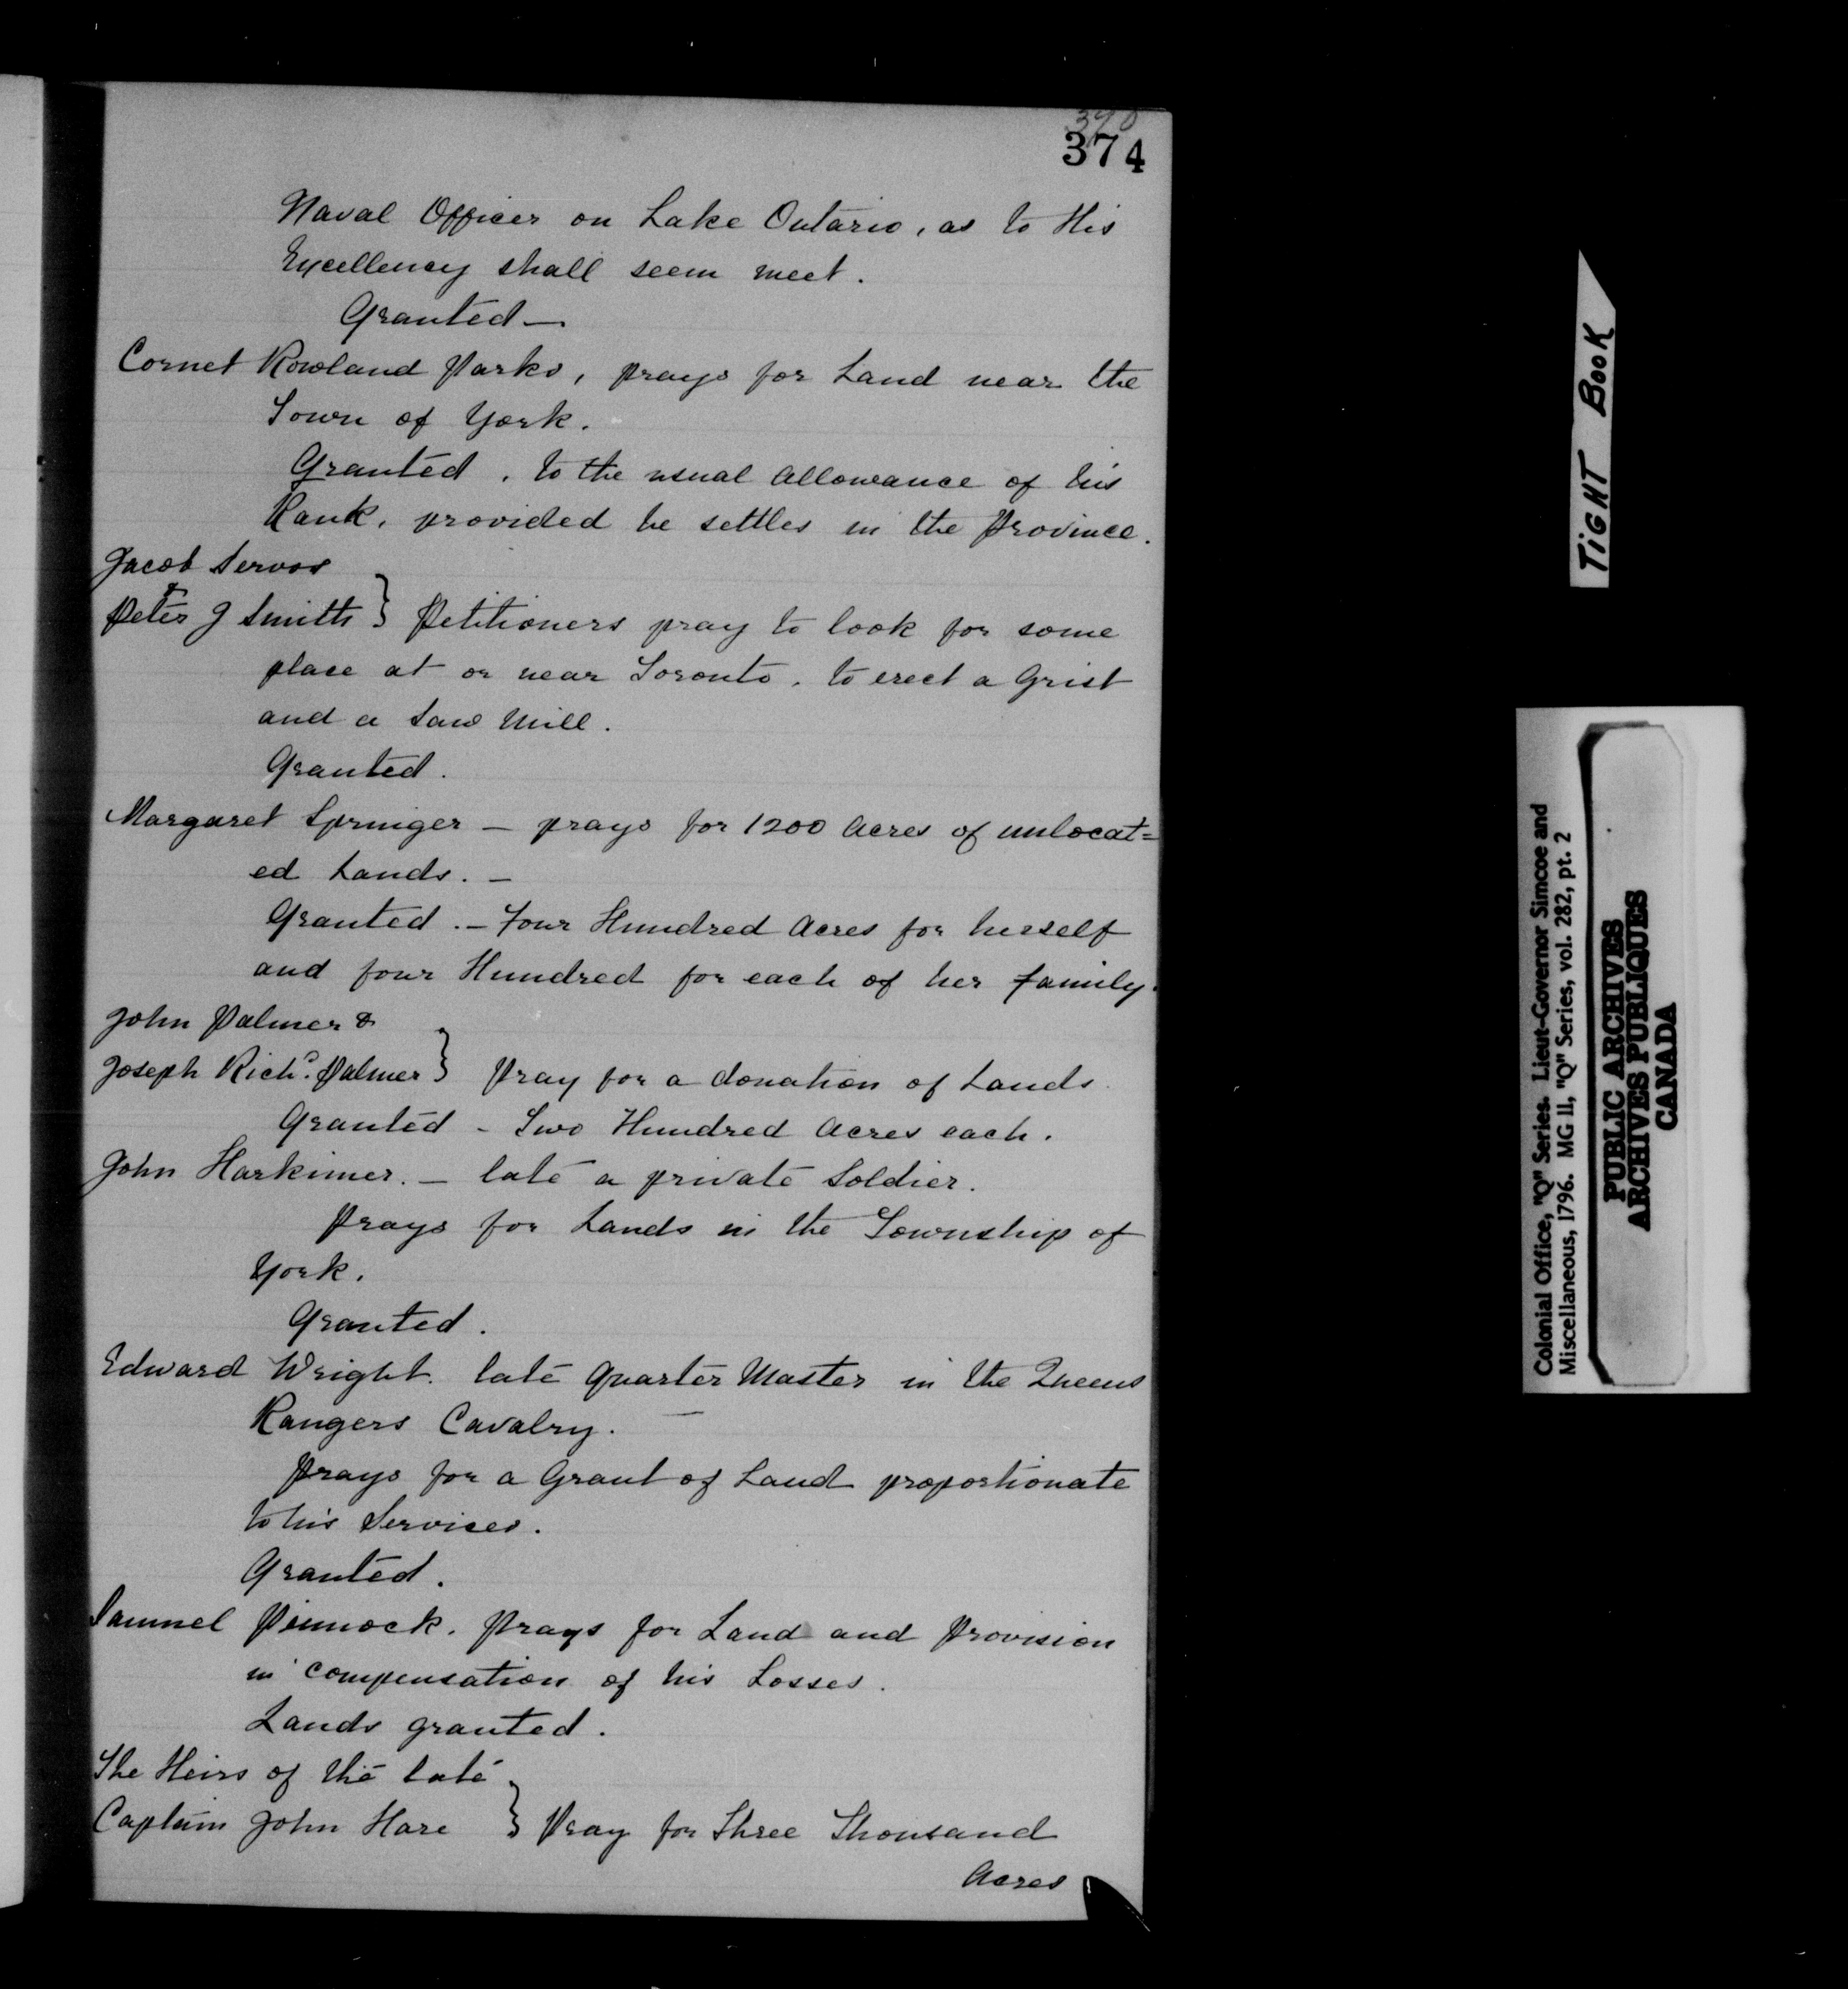 390
374
Naval Officer on Lake Ontario, as to His
Excellency shall seem meet.
Granted —
Cornet Rowland Parks, prays for Land near the
Town of York.
Granted, to the usual allowance of his
Rank, provided he settles in the Province.
Jacob Servos
&
Peter J Smith } Petitioners pray to look for some
place at or near Toronto. to erect a Grist
and a Saw Mill.
Granted.
Margaret Springer — prays for 1200 Acres of unlocat=
ed Lands. —
Granted. — Four Hundred Acres for herself
and four Hundred for each of her family.
John Palmer &
Joseph Richd. Palmer } Pray for a donation of Lands
Granted - Two Hundred Acres each.
John Harkimer. — late a private Soldier.
Prays for Lands in the Township of
York.
Granted.
Edward Wright. late Quarter Master in the Queens
Rangers Cavalry. —
Prays for a Grant of Land proportionate
to his Services.
Granted.
Samuel Pinnock. Prays for Land and Provision
in compensation of his Losses.
Lands granted.
The Heirs of the late
Captain John Hare } Pray for Three Thousand
Acres
TIGHT BOOK
Colonial Office, "Q" Series. Lieut-Governor Simcoe and
Miscellaneous, 1796. MG 11, "Q" Series, vol. 282, pt. 2
PUBLIC ARCHIVES
ARCHIVES PUBLIQUES
CANADA